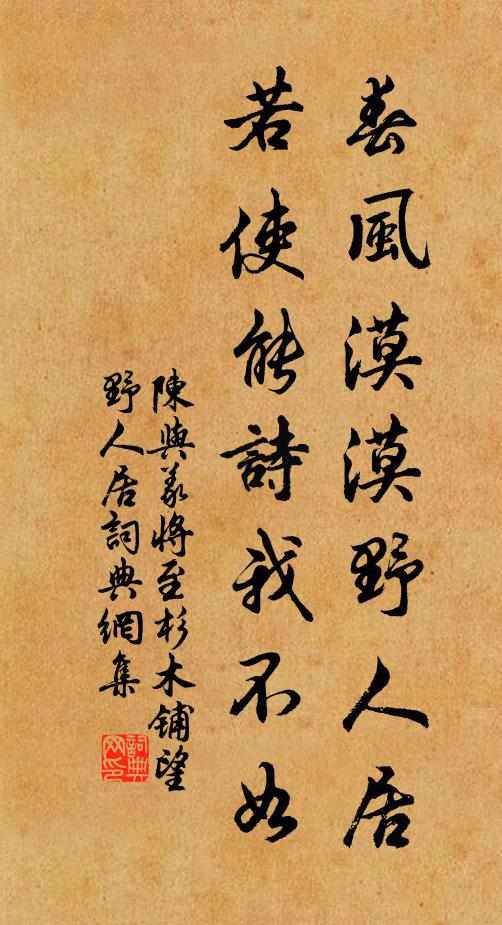 春風漠漠野人居
若使能詩我不如
陳與義將至杉木鋪望
野人居詞典網集
詞典
网印